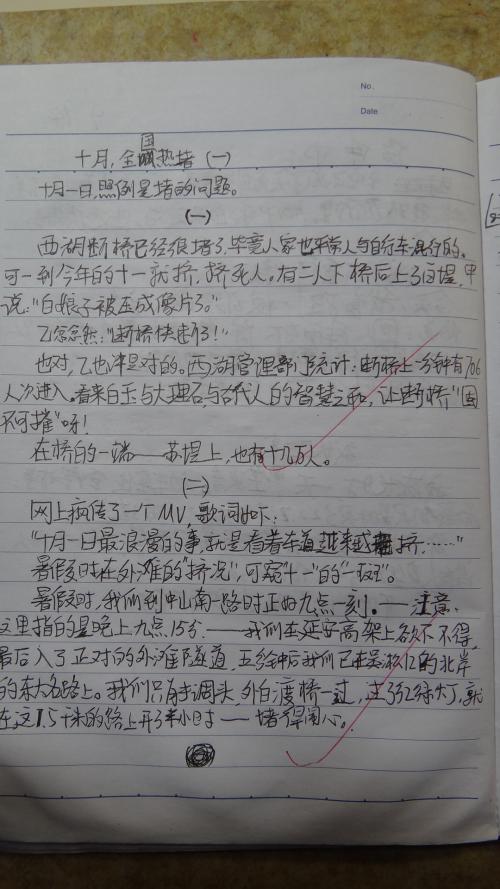 No.
Date
十月,全国热堵(一)
十月一日,照例是堵的问题。
(一)
西湖断桥已经很堵了,毕竟人家也平常人与自行车混行的。
可一到今年的十一就挤,挤死人。有二人下桥后上了白堤,甲
说:“白娘子被压成像片了。”
乙忿忿然:“断桥快断了!”
也对,乙也许是对的。西湖管理部门统计:断桥上一分钟有766
人次进入。看来白玉与大理石,与古代人的智慧之和,让断桥“固
不可摧”呀!
在桥的一端——苏堤上,也有十几万人。
(二)
网上疯传了一个MV,歌词如下:
“十月一日最浪漫的事,就是看着车道越来越挤……”
暑假时在外滩的“挤况”,可窥“十一”的“一斑”。
暑假时,我们到中山南一路时正好九点一刻。——注意,
这里指的是晚上九点15分.——我们在延安高架上欲下不得,
最后入了正对的外滩隧道,五分钟后我们已在吴淞江的北岸
的东大名路上。我们只有打调头,外白渡桥一过,主了红绿灯,就
在这1.5千米的路上开了半小时——堵得闹心。